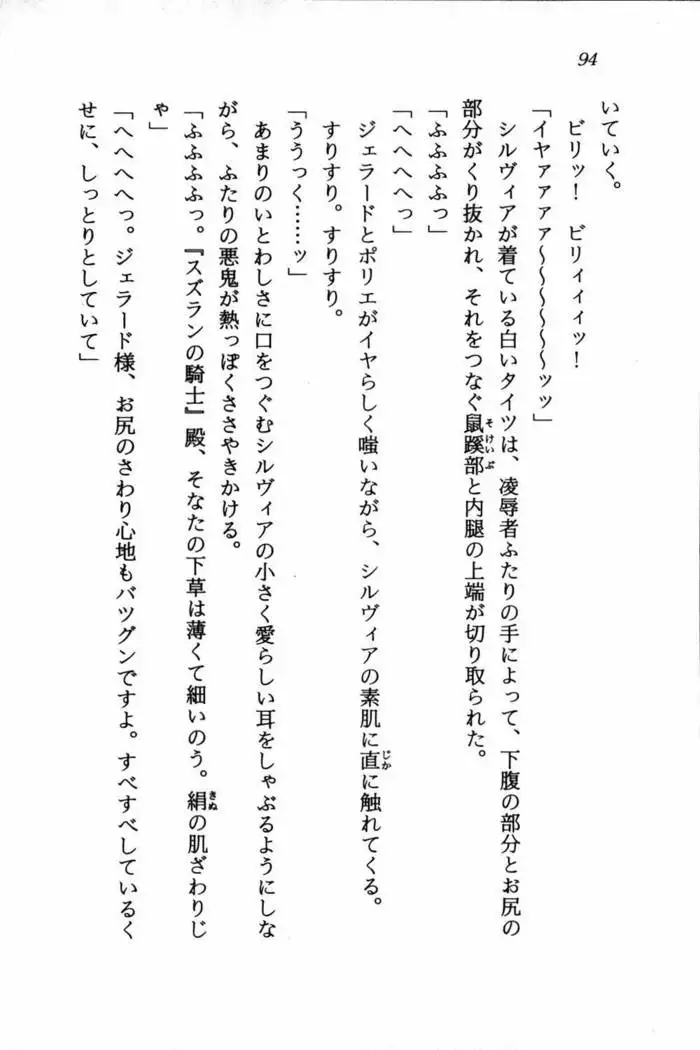 94
いていく。
ビリッ!　ビリィィィッ!
「イヤァァァァ〜〜〜〜〜〜ッッ」
シルヴィアが着ている白いタイツは、凌辱者ふたりの手によって、下腹の部分とお尻の
部分がくり抜かれ、それをつなぐ鼠蹊部と内腿の上端が切り取られた。
「ふふふふっ」
「へへへへっ」
ジェラードとポリエがイヤらしく嗤いながら、シルヴィアの素肌に直に触れてくる。
すりすり。すりすり。
「ううっく……ッ」
あまりのいとわしさに口をつぐむシルヴィアの小さく愛らしい耳をしゃぶるようにしな
がら、ふたりの悪鬼が熱っぽくささやきかける。
「ふふふふっ。『スズランの騎士』殿、そなたの下草は薄くて細いのう。絹の肌ざわりじ
ゃ」
「へへへへっ。ジェラード様、お尻のさわり心地もバツグンですよ。すべすべしているく
せに、しっとりとしていて」